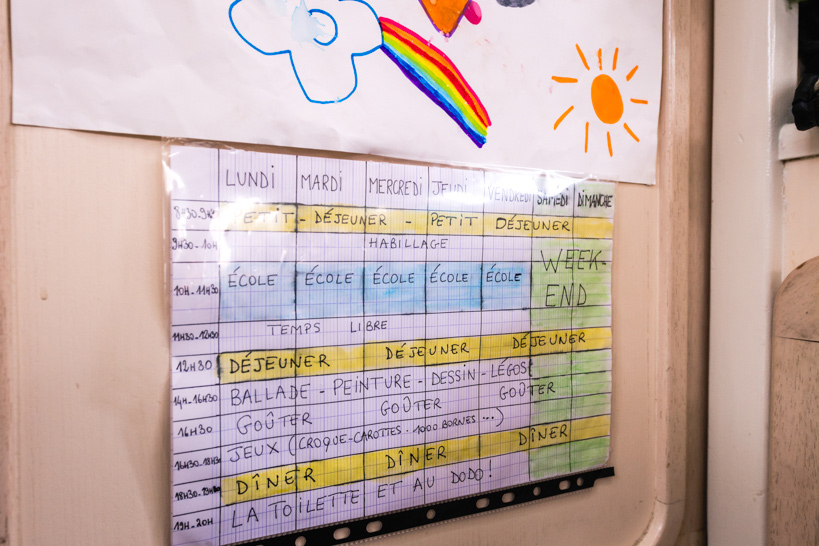 LUNDI MARDI MERCREDI JEUDI VENDREDI SAMEDI DIMANCHE
PETIT-DÉJEUNER - PETIT DÉJEUNER
9H30-10H HABILLAGE
10H-11H30 ÉCOLE ÉCOLE ÉCOLE ÉCOLE ÉCOLE WEEK-
END
11H30-12H30 TEMPS LIBRE
12H30 DÉJEUNER DÉJEUNER DÉJEUNER
14H-16H30 BALLADE - PEINTURE - DESSIN - LÉGOS
16H30 GOÛTER GOÛTER GOÛTER
16H30-18H30 JEUX (CROQUE-CAROTTES. 1000 BORNES ...)
DÎNER DÎNER DÎNER
19H-20H LA TOILETTE ET AU DODO!